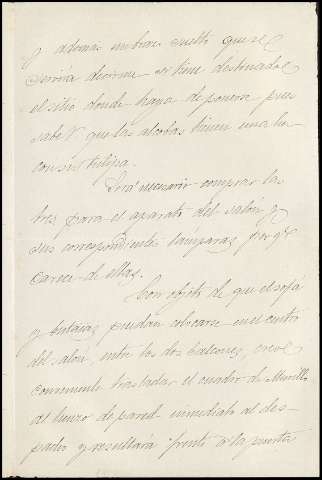 y además un brazo suelto que se
servirá decirme si tiene destinado
el sitio donde haya de ponerse pues
sabe V. que las alcobas tienen una luz
con su bulfina.
Será necesario comprar las
tres para el aparato del salón y
sus correspondientes lámparas por qe
carece de ellas.
Con objeto de que el sofá
y butacas puedan colocarse en el centro
del salón, entre los dos balcones, creo
conveniente trasladar el cuadro de Murillo
al lienzo de pared inmediato al des-
pacho y resultaría frente a la puerta